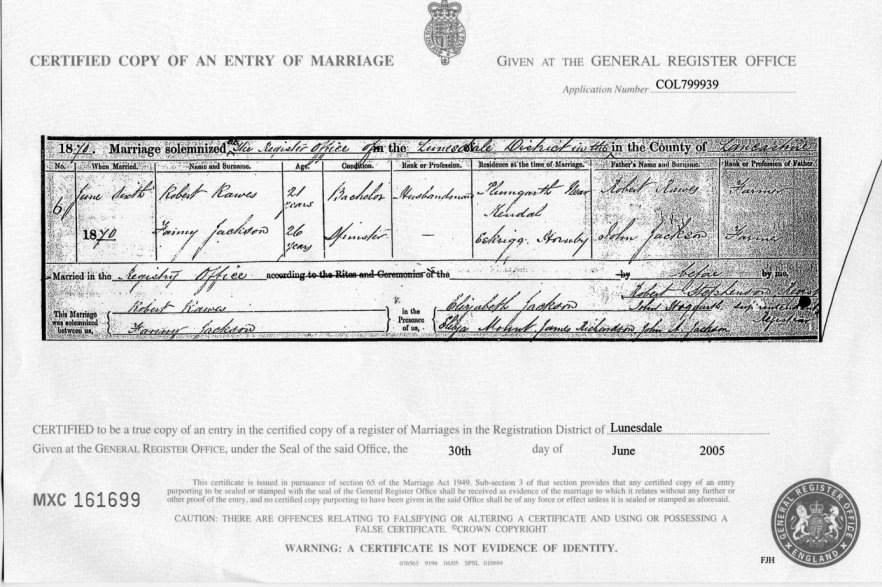 CERTIFIED COPY OF AN ENTRY OF MARRIAGE
GIVEN AT THE GENERAL REGISTER OFFICE
Application Number COL799939
1870. Marriage solemnized at The Register Office in the Lunesdale District in the in the County of Lancashire
No. When Married. Name and Surname. Age. Condition. Rank or Profession. Residence at the time of Marriage. Father's Name and Surname. Rank or Profession of Father
6 June Sixth Robert Rawes 21 years Bachelor Husbandman Plumgarth Near Kendal Robert Rawes Farmer
1870 Fanny Jackson 26 years Spinster — Eskrigg. Hornby John Jackson Farmer
Married in the Registry Office according to the Rites and Ceremonies of the by before by me,
This Marriage was solemnized between us, Robert Rawes Fanny Jackson
in the Presence of us, Elizabeth Jackson Mount James Richardson John A. Jackson
Robert Stephenson
John Hoggarth Registrar
CERTIFIED to be a true copy of an entry in the certified copy of a register of Marriages in the Registration District of Lunesdale
Given at the GENERAL REGISTER OFFICE, under the Seal of the said Office, the 30th day of June 2005
MXC 161699
This certificate is issued in pursuance of section 65 of the Marriage Act 1949. Sub-section 3 of that section provides that any certified copy of an entry
purporting to be sealed or stamped with the seal of the General Register Office shall be received as evidence of the marriage to which it relates without any further or
other proof of the entry, and no certified copy purporting to have been given in the said Office shall be of any force or effect unless it is sealed or stamped as aforesaid.
CAUTION: THERE ARE OFFENCES RELATING TO FALSIFYING OR ALTERING A CERTIFICATE AND USING OR POSSESSING A
FALSE CERTIFICATE. ©CROWN COPYRIGHT
WARNING: A CERTIFICATE IS NOT EVIDENCE OF IDENTITY.
036563 9198 04/05 SPSL 010694
FJH
GENERAL REGISTER OFFICE
ENGLAND